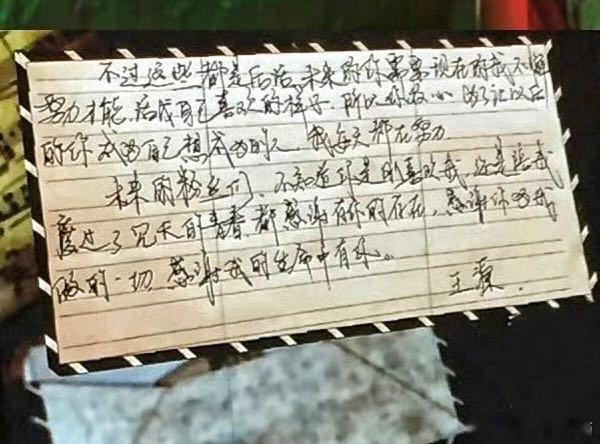 不过这些都是后话,未来的你需要现在的我不懈
努力才能活成自己喜欢的样子,所以你放心,为了让以后
的你成为自己想成为的人,我每天都在努力
未来的粉丝们,不知道你是刚喜欢我,还是陪我
度过了冗长的青春,都感谢有你的存在,感谢你为我
做的一切,感谢我的生命中有你。
王源.